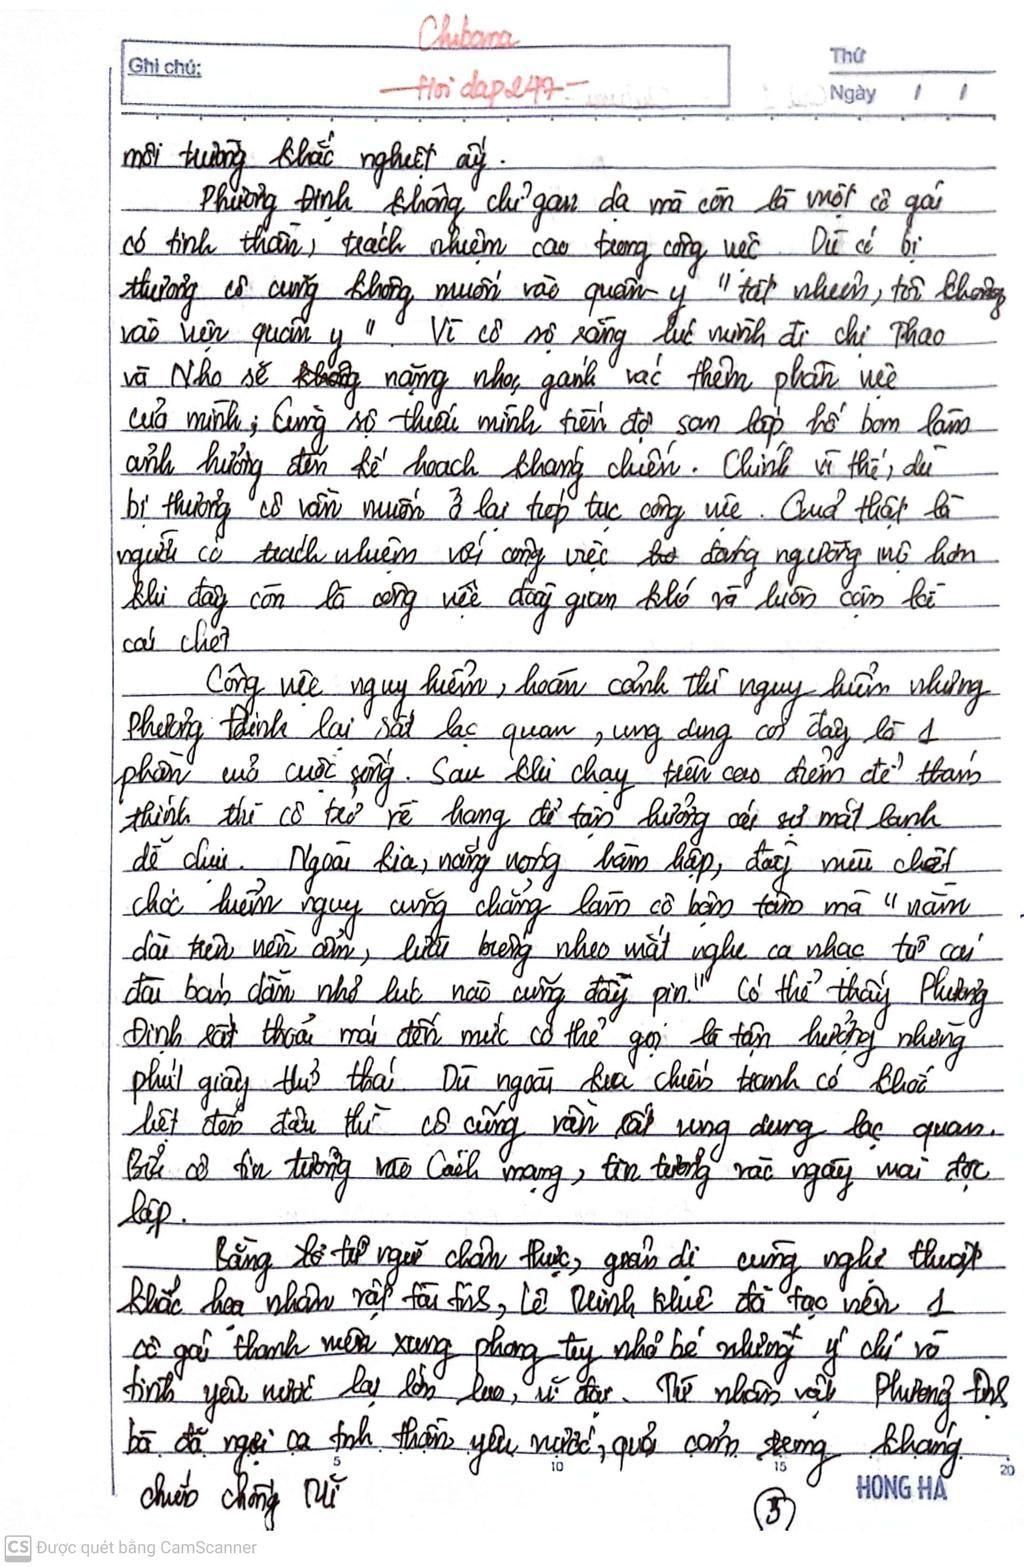 Chibana
Ghi chú:
Thứ
- Hoi dap 247 -
Ngày / /
môi trường khắc nghiệt ấy.
Phương Định không chỉ gan dạ mà còn là một cô gái
có tinh thần, trách nhiệm cao trong công việc. Dù có bị
thương cô cũng không muốn vào quân y "tất nhiên, tôi không
vào viện quân y". Vì cô sợ rằng lúc mình đi chị Thao
và Nho sẽ nặng nhọc gánh vác thêm phần việc
của mình; Cũng sợ thiếu mình tiến độ san lấp hố bom làm
ảnh hưởng đến kế hoạch kháng chiến. Chính vì thế, dù
bị thương cô vẫn muốn ở lại tiếp tục công việc. Quả thật là
người có trách nhiệm với công việc đáng ngưỡng mộ hơn
khi đây còn là công việc đầy gian khó và luôn cận kề
cái chết
Công việc nguy hiểm, hoàn cảnh thì nguy hiểm nhưng
Phương Định lại rất lạc quan, ung dung coi đây là 1
phần của cuộc sống. Sau khi chạy trên cao điểm để thám
thính thì cô trở về hang để tận hưởng cái sự mát lạnh
dễ chịu. Ngoài kia, nắng nóng hầm hập, đầy mùi chết
chóc hiểm nguy cũng chẳng làm cô bận tâm mà "nằm
dài trên nền ẩm, lười biếng nheo mắt nghe ca nhạc từ cái
đài bán dẫn nhỏ lúc nào cũng đầy pin." Có thể thấy Phương
Định rất thoải mái đến mức có thể gọi là tận hưởng những
phút giây thư thái. Dù ngoài kia chiến tranh có khốc
liệt đến đâu thì cô cũng vẫn rất ung dung lạc quan.
Bởi cô tin tưởng vào Cách mạng, tin tưởng vào ngày mai độc
lập.
Bằng từ ngữ chân thực, giản dị cùng nghệ thuật
khắc họa nhân vật tài tình, Lê Minh Khuê đã tạo nên 1
cô gái thanh niên xung phong tuy nhỏ bé nhưng ý chí và
tình yêu nước lại lớn lao, vĩ đại. Từ nhân vật Phương Định
bà đã ngợi ca tinh thần yêu nước, quả cảm trong kháng
5 10 15 20
chiến chống Mĩ
HONG HA
5
CS Được quét bằng CamScanner